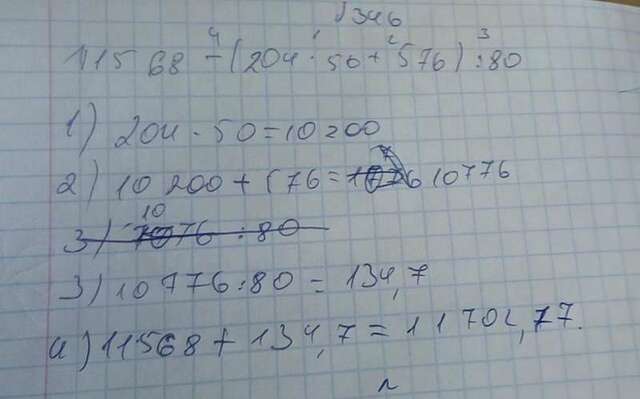 √346
11568 - (204 · 50 + 576) : 80
1) 204 · 50 = 10200
2) 10 200 + 576 = 10776
3) 1076 : 80
3) 10776 : 80 = 134,7
4) 11568 + 134,7 = 11702,77.